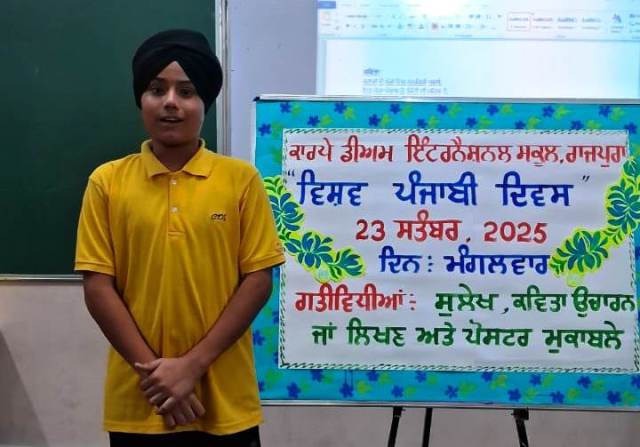 ਕਾਰਪੇ ਡੀਅਮ ਇੰਟਰਨੈਸ਼ਨਲ ਸਕੂਲ, ਰਾਜਪੁਰਾ
"ਵਿਸ਼ਵ ਪੰਜਾਬੀ ਦਿਵਸ"
23 ਸਤੰਬਰ, 2025
ਦਿਨ : ਮੰਗਲਵਾਰ
ਗਤੀਵਿਧੀਆਂ : ਸੁਲੇਖ, ਕਵਿਤਾ ਉਚਾਰਨ
ਜਾਂ ਲਿਖਣ ਅਤੇ ਪੋਸਟਰ ਮੁਕਾਬਲੇ